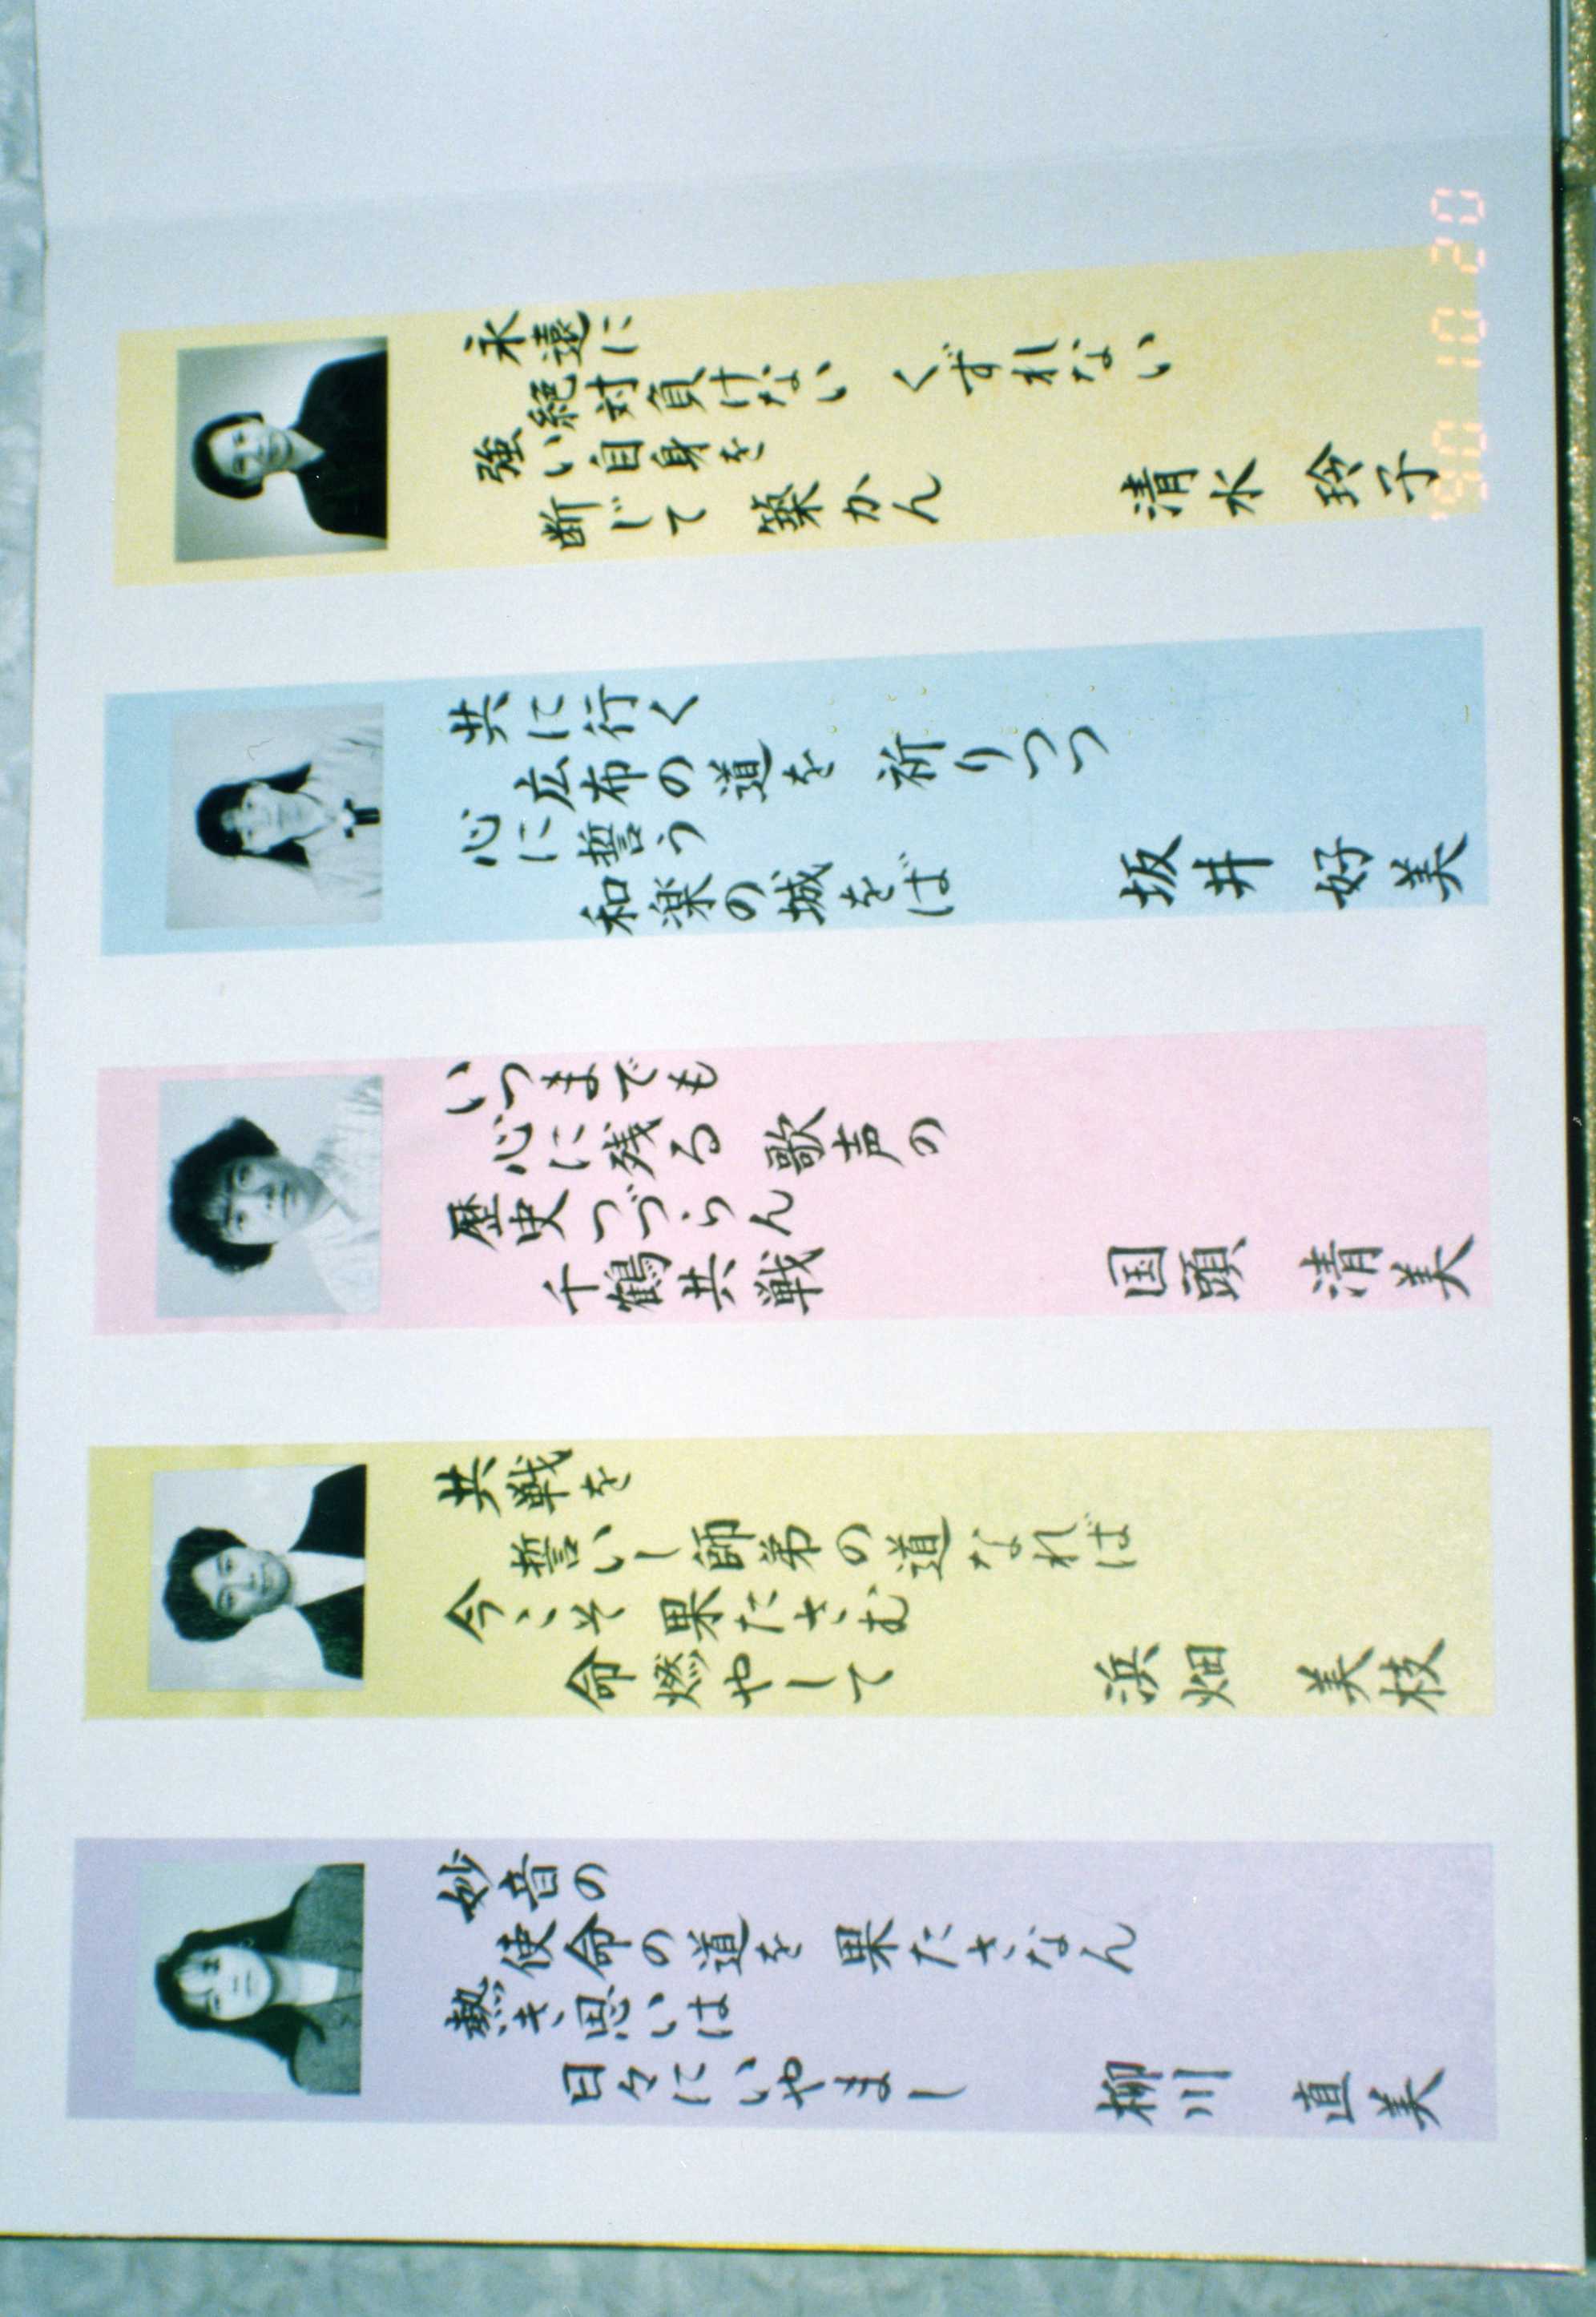 永遠に
絶対負けない くずれない
強い自身を
断じて 築かん
清水 玲子
共に行く
広布の道を 祈りつつ
心に誓う
和楽の城をば
坂井 好美
いつまでも
心に残る 歌声の
歴史つづらん
千鶴共戦
国頭 清美
共戦を
誓いし師弟の道なれば
今こそ果たさむ
命燃やして
浜畑 美枝
妙音の
使命の道を 果たさなん
熱き思いは
日々にいやまし
柳川 直美
'90 10 20